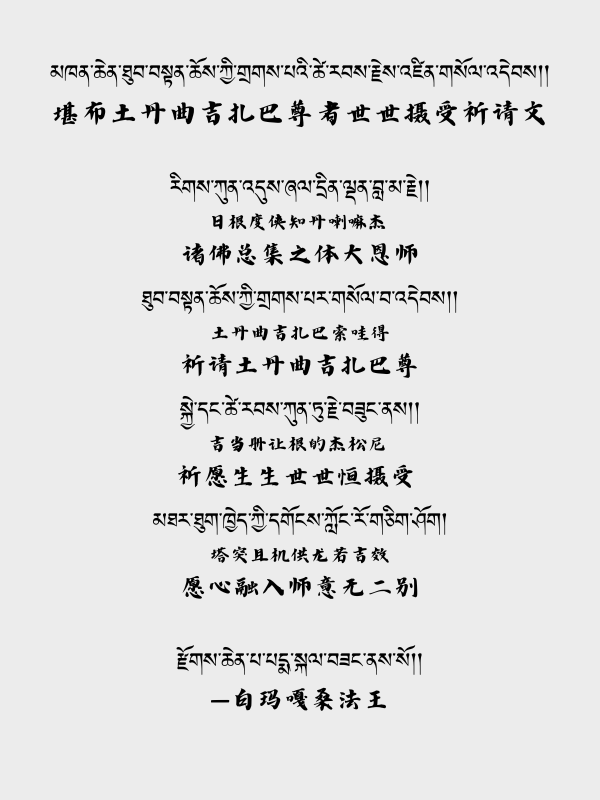 མཁན་ཆེན་ཐུབ་བསྟན་ཆོས་ཀྱི་གྲགས་པའི་ཚེ་རབས་རྗེས་འཛིན་གསོལ་འདེབས།།
堪布土丹曲吉扎巴尊者世世摄受祈请文
རིགས་ཀུན་འདུས་ཞལ་དྲིན་ལྡན་བླ་མ་རྗེ།།
日根度侠知丹喇嘛杰
诸佛总集之体大恩师
ཐུབ་བསྟན་ཆོས་ཀྱི་གྲགས་པར་གསོལ་བ་འདེབས།།
土丹曲吉扎巴索哇得
祈请土丹曲吉扎巴尊
སྐྱེ་དང་ཚེ་རབས་ཀུན་ཏུ་རྗེ་བཟུང་ནས།།
吉当册让根的杰松尼
祈愿生生世世恒摄受
མཐར་ཐུག་ཁྱེད་ཀྱི་དགོངས་ཀློང་རོ་གཅིག་ཤོག།
塔突且机供龙若吉效
愿心融入师意无二别
རྫོགས་ཆེན་པ་པདྨ་སྐལ་བཟང་ནས་སོ།།
—白玛嘎桑法王